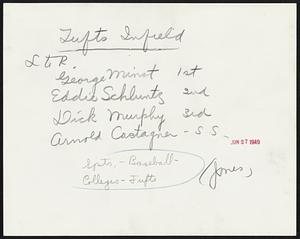 Tufts Infield
L to R.
George Minot 1st
Eddie Schluntz 2nd
Dick Murphy 3rd
Arnold Castagner - S S.
JUN 27 1949
Spts. - Baseball -
Colleges - Tufts
(Jones)